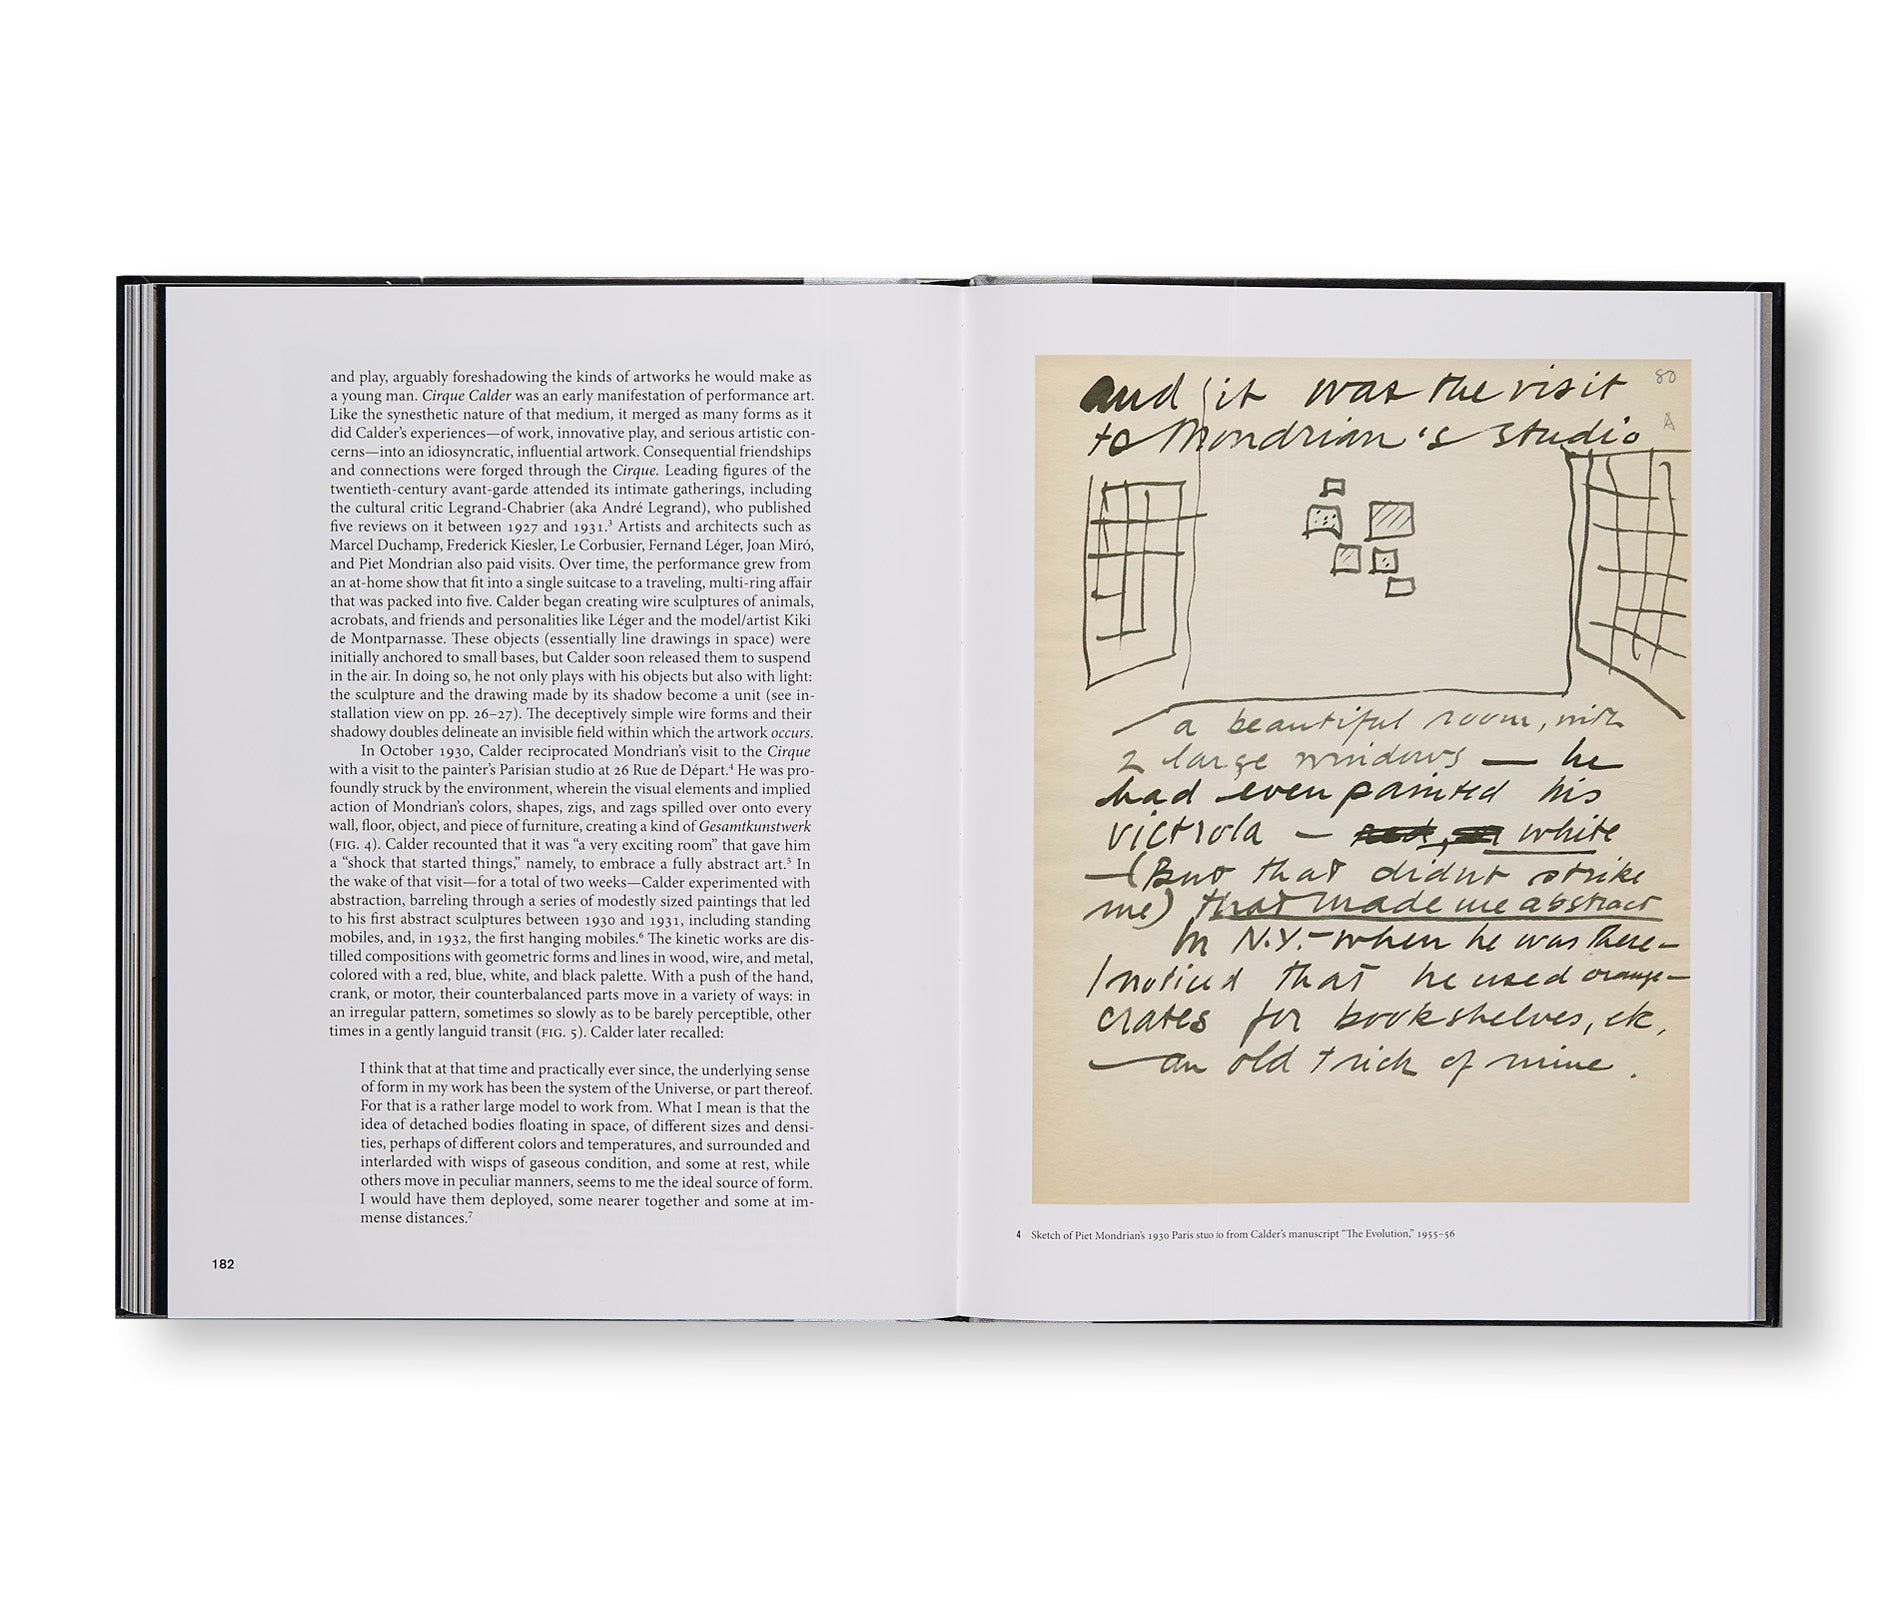 and play, arguably foreshadowing the kinds of artworks he would make as
a young man. Cirque Calder was an early manifestation of performance art.
Like the synesthetic nature of that medium, it merged as many forms as it
did Calder's experiences—of work, innovative play, and serious artistic con-
cerns—into an idiosyncratic, influential artwork. Consequential friendships
and connections were forged through the Cirque. Leading figures of the
twentieth-century avant-garde attended its intimate gatherings, including
the cultural critic Legrand-Chabrier (aka André Legrand), who published
five reviews on it between 1927 and 1931.³ Artists and architects such as
Marcel Duchamp, Frederick Kiesler, Le Corbusier, Fernand Léger, Joan Miró,
and Piet Mondrian also paid visits. Over time, the performance grew from
an at-home show that fit into a single suitcase to a traveling, multi-ring affair
that was packed into five. Calder began creating wire sculptures of animals,
acrobats, and friends and personalities like Léger and the model/artist Kiki
de Montparnasse. These objects (essentially line drawings in space) were
initially anchored to small bases, but Calder soon released them to suspend
in the air. In doing so, he not only plays with his objects but also with light:
the sculpture and the drawing made by its shadow become a unit (see in-
stallation view on pp. 26–27). The deceptively simple wire forms and their
shadowy doubles delineate an invisible field within which the artwork occurs.
In October 1930, Calder reciprocated Mondrian's visit to the Cirque
with a visit to the painter's Parisian studio at 26 Rue de Départ.⁴ He was pro-
foundly struck by the environment, wherein the visual elements and implied
action of Mondrian's colors, shapes, zigs, and zags spilled over onto every
wall, floor, object, and piece of furniture, creating a kind of Gesamtkunstwerk
(FIG. 4). Calder recounted that it was “a very exciting room” that gave him
a “shock that started things,” namely, to embrace a fully abstract art.⁵ In
the wake of that visit—for a total of two weeks—Calder experimented with
abstraction, barreling through a series of modestly sized paintings that led
to his first abstract sculptures between 1930 and 1931, including standing
mobiles, and, in 1932, the first hanging mobiles.⁶ The kinetic works are dis-
tilled compositions with geometric forms and lines in wood, wire, and metal,
colored with a red, blue, white, and black palette. With a push of the hand,
crank, or motor, their counterbalanced parts move in a variety of ways: in
an irregular pattern, sometimes so slowly as to be barely perceptible, other
times in a gently languid transit (FIG. 5). Calder later recalled:
I think that at that time and practically ever since, the underlying sense
of form in my work has been the system of the Universe, or part thereof.
For that is a rather large model to work from. What I mean is that the
idea of detached bodies floating in space, of different sizes and densi-
ties, perhaps of different colors and temperatures, and surrounded and
interlarded with wisps of gaseous condition, and some at rest, while
others move in peculiar manners, seems to me the ideal source of form.
I would have them deployed, some nearer together and some at im-
mense distances.⁷
182
80
A
and it was the visit
to Mondrian's studio
a beautiful room, with
2 large windows — he
had even painted his
victrola — white
—(But that didnt strike
me) that made me abstract
In N.Y. — when he was there —
I noticed that he used orange-
crates for bookshelves, etc.
— an old trick of mine.
4 Sketch of Piet Mondrian's 1930 Paris stuo io from Calder's manuscript “The Evolution,” 1955–56